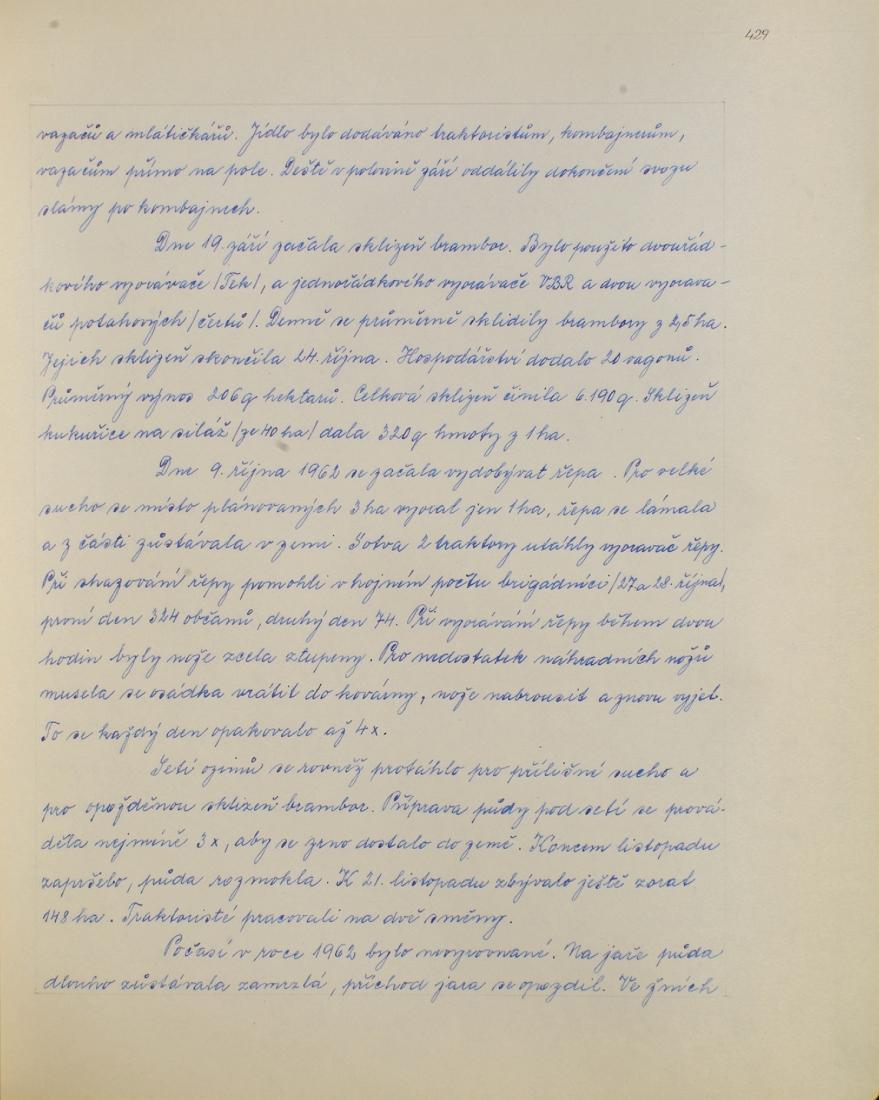 429
vazačů a mlátičkářů. Jídlo bylo dodáváno traktoristům, kombajnerům,
vazačům přímo na pole. Deště v polovině září oddálily dokončení svozu
slámy po kombajnech.
Dne 19. září začala sklizeň brambor. Bylo použito dvouřád-
kového vyorávače /Tek/, a jednořádkového vyorávače VBR a dvou vyorava-
čů potahových /čertů/. Denně se průměrně sklidily brambory z 2,5 ha.
Jejich sklizeň skončila 24. října. Hospodářství dodalo 20 vagonů.
Průměrný výnos 206 q hektarů. Celková sklizeň činila 6.190 q. Sklizeň
kukuřice na siláž /ze 40 ha/ dala 320 q hmoty z 1 ha.
Dne 9. října 1962 se začala vydobývat řepa. Pro velké
sucho se místo plánovaných 3 ha vyoral jen 1 ha, řepa se lámala
a z části zůstávala v zemi. Sotva 2 traktory utáhly vyoravač řepy.
Při shazování řepy pomohli v hojném počtu brigádníci /27 a 28. října/,
první den 324 občanů, druhý den 74. Při vyorávání řepy během dvou
hodin byly nože zcela ztupeny. Pro nedostatek náhradních nožů
musela se osádka vrátit do kovárny, nože nabrousit a znovu vyjet.
To se každý den opakovalo až 4x.
Setí ozimů se rovněž protáhlo pro přílišné sucho a
pro opožděnou sklizeň brambor. Příprava půdy pod setí se prová-
děla nejméně 3x, aby se zrno dostalo do země. Koncem listopadu
zapršelo, půda rozmokla. K 21. listopadu zbývalo ještě zorat
148 ha. Traktoristé pracovali na dvě směny.
Počasí v roce 1962 bylo nevyrovnané. Na jaře půda
dlouho zůstávala zamrzlá, příchod jara se opozdil. Ve žních